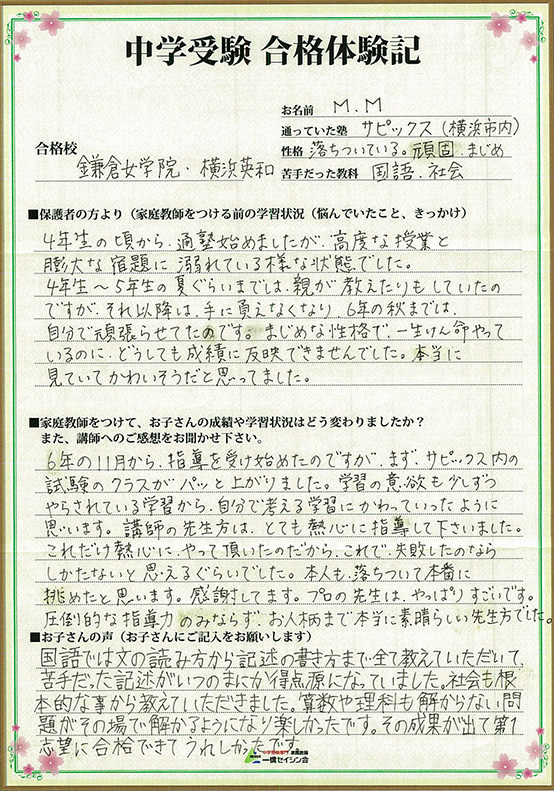 中学受験 合格体験記
お名前 M.M
通っていた塾 サピックス(横浜市内)
性格 落ちついている。頑固.まじめ
合格校 鎌倉女学院・横浜英和
苦手だった教科 国語.社会
■保護者の方より(家庭教師をつける前の学習状況(悩んでいたこと、きっかけ)
4年生の頃から、通塾始めましたが、高度な授業と
膨大な宿題に溺れている様な状態でした。
4年生〜5年生の夏ぐらいまでは、親が教えたりもしていたの
ですが、それ以降は、手に負えなくなり、6年の秋までは、
自分で頑張らせてたのです。まじめな性格で、一生けん命やって
いるのに、どうしても成績に反映できませんでした。本当に
見ていてかわいそうだと思ってました。
■家庭教師をつけて、お子さんの成績や学習状況はどう変わりましたか?
また、講師へのご感想をお聞かせ下さい。
6年の11月から、指導を受け始めたのですが、まず、サピックス内の
試験のクラスがパッと上がりました。学習の意欲も少しずつ
やらされている学習から、自分で考える学習にかわっていったように
思います。講師の先生方は、とても熱心に指導して下さいました。
これだけ熱心に、やって頂いたのだから、これで、失敗したのなら
しかたないと思えるぐらいでした。本人も、落ちついて本番に
挑めたと思います。感謝してます。プロの先生は、やっぱりすごいです。
圧倒的な指導力のみならず、お人柄まで本当に素晴らしい先生方でした。
■お子さんの声(お子さんにご記入をお願いします)
国語では文の読み方から記述の書き方まで全て教えていただいて、
苦手だった記述がいつのまにか得点源になっていました。社会も根
本的な事から教えていただきました。算数や理科も解からない問
題がその場で解かるようになり楽しかったです。その成果が出て第1
志望に合格できてうれしかったです。
中学受験専門 家庭教師
一橋セイシン会